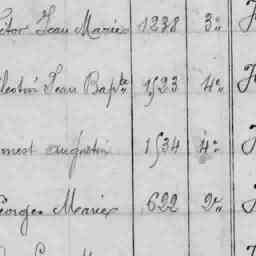 ctor Jean Marie 1238 3e
lestin Jean Bapte 1523 4e
rnest Augustin 1534 4e
eorges Marie 622 2e